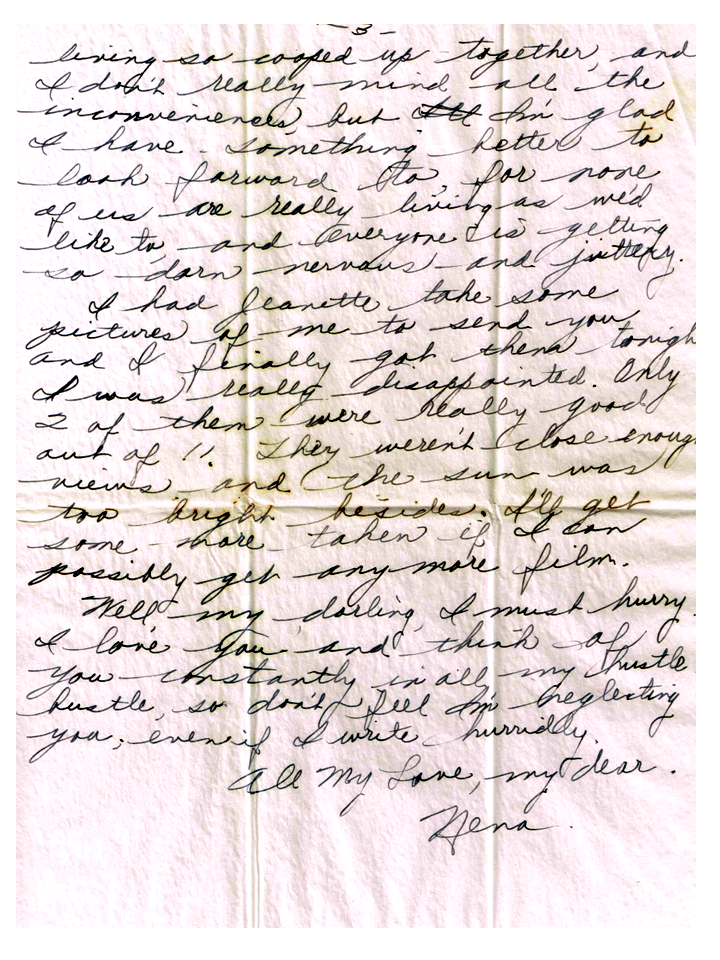 -3-
living so cooped up together, and
I don't really mind all the
inconveniences, but I'm glad
I have something better to
look forward to, for none
of us are really living as we'd
like to, and everyone is getting
so darn nervous and jittery.
I had Jeanette take some
pictures of me to send you
and I finally got them tonigh
I was really disappointed. Only
2 of them were really good
out of 11. They weren't close enoug
views and the sun was
too bright besides. I'll get
some more taken if I can
possibly get any more film.
Well my darling, I must hurry.
I love you and think of
you constantly in all my hustle
bustle, so don't feel I'm neglecting
you, even if I write hurridly.
All My Love, my dear.
Nena.